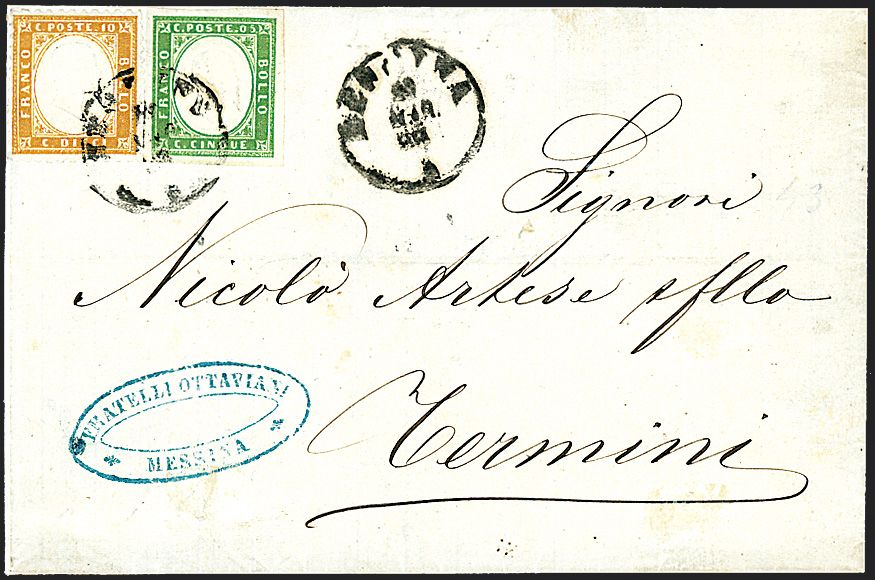 C. POSTE. 10
FRANCO
BOLLO
C. DIECI
C. POSTE. 05
FRANCO
BOLLO
C. CINQUE
Signori
Nicolò Artese
Termini
FRATELLI OTTAVIANI
MESSINA